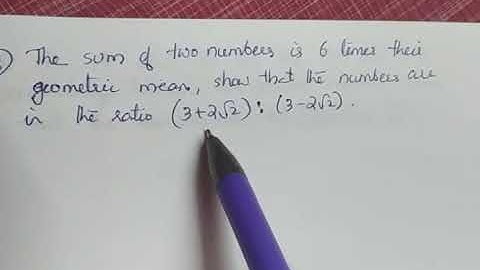 The sum of two numbers is 6 times their
geometric mean, show that the numbers are
in the ratio (3+2√2) : (3-2√2).